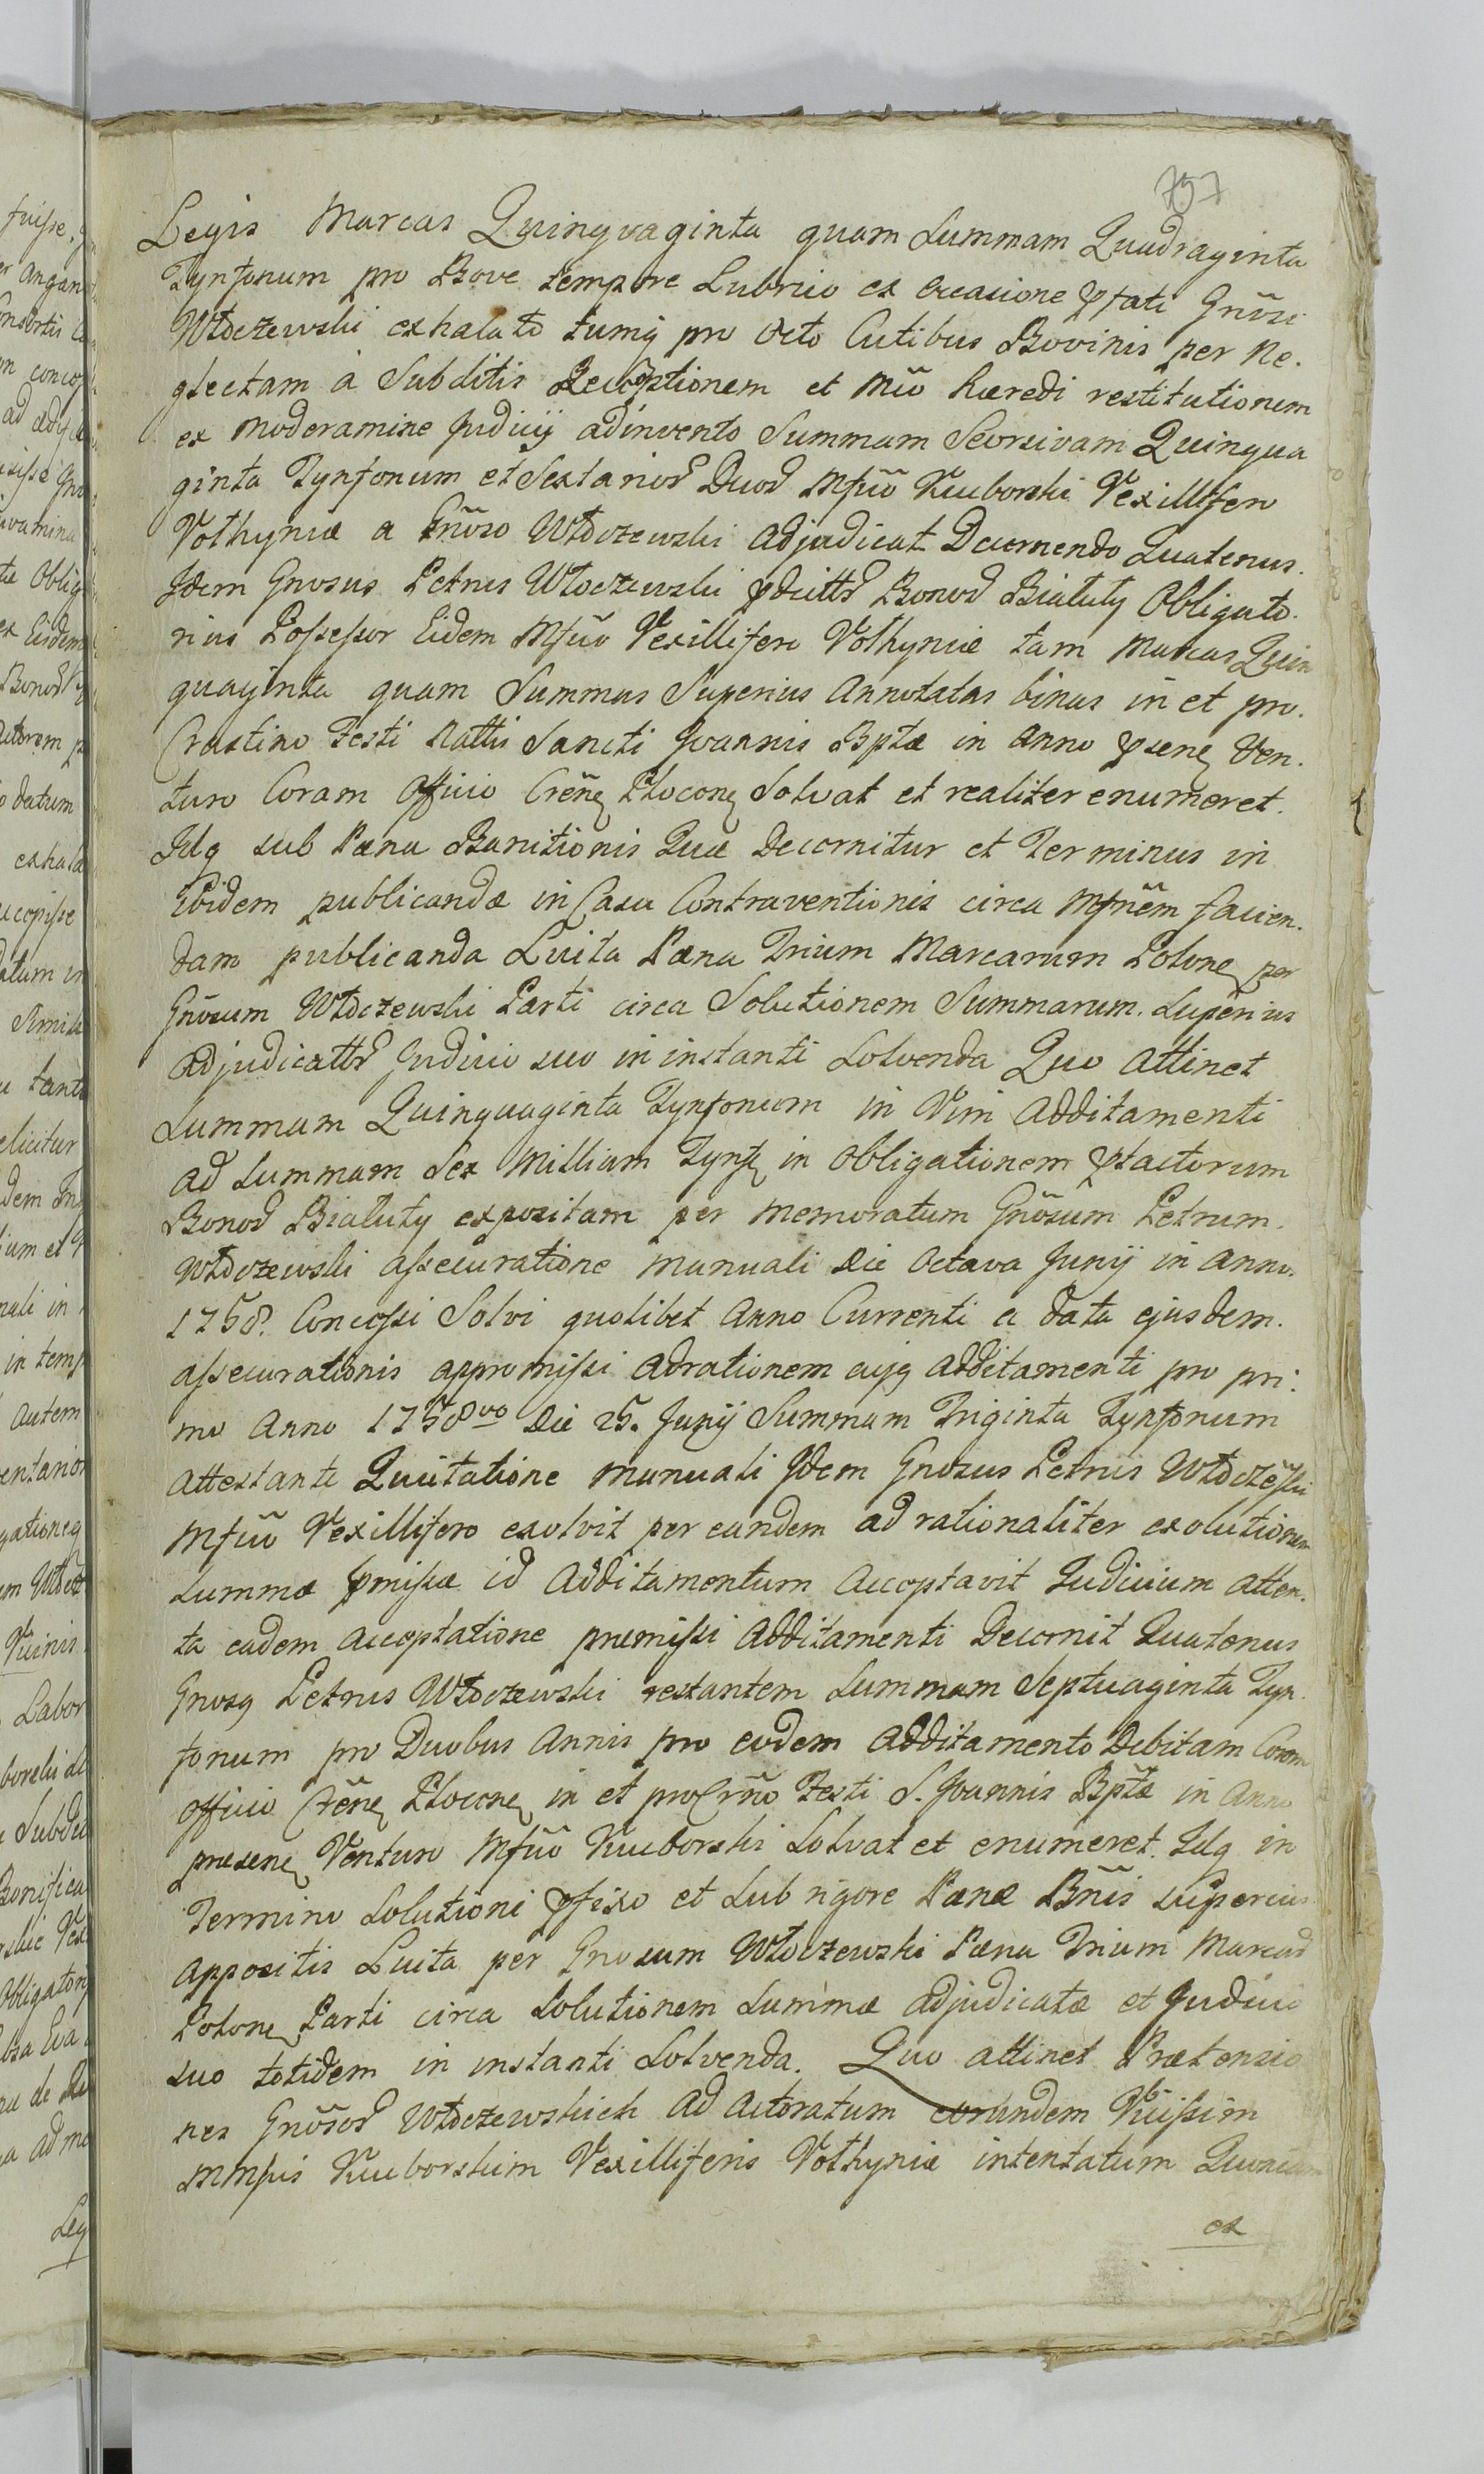 757
Legis Marcas Quinqvaginta quam Summam Quadraginta
Tynfonum pro Bove tempore Lubrico ex occasione pfati Gnõsi
Włoczewski exhalato tumq pro octo Cutibus Bovinis per Ne.
glectam à Subditis Receptionem et Mfio hæredi restitutionem
ex moderamine Judicij adinvento Summam Seorsivam Quinqua
ginta Tynfonum et Sextariorũ Duorũ Mfico Kuuborski Vexillifero
Volhyniæ a Gnõso Włoczewski adjudicat Decernendo Quatenus.
Idem Gnosus Petrus Włoczewski pdictorũ Bonorũ Białuty Obligato.
rius Possessor Eidem Mfico Vexillifero Volhyniæ tam Marcas Quin
quaginta quam Summas Superius Annotatas binas in et pro.
Crastino Festi Nattis Sancti Joannis Bptæ in Anno psene Ven.
turo Coram Officio Crẽne Płocone Solvat et realiter enumeret.
Idq sub Pæna Banitionis Quæ Decernitur et Terminus in
Ibidem publicandæ in Casu Contraventionis circa Mfñẽm facien.
dam publicanda Luita Pæna Trium Marcarum Polone per
Gnõsum Włoczewski Parti circa Solutionem Summarum. Superius
adjudicattrũ Judicio suo in instanti Solvenda Quo attinet
Summam Quinquaginta Tynfonum in Vim additamenti
ad Summam Sex Millium Tynf in obligationem pfactorum
Bonorũ Białuty expositam per memoratum Gnõsum Petrum.
Włoczewski assecuratione manuali die octava Junij in anno.
1758. Concessi Solvi quolibet Anno Currenti a data ejusdem.
assecurationis appromissi adrationem cujq additamenti pro pri.
mo Anno 1758vo Die 25. Junij Summam Triginta Tynfonum
attestante Quitatione manuali Idem Gnosus Petrus Włoczẽski
Mfico Vexillifero exolvit per eundem ad rationaliter exolutionem
Summæ pmissæ id Additamentum Acceptavit Judicium atten.
ta eadem acceptatione premissi Additamenti Decernit Quatenus
Gnosq Petrus Włoczewski restantem Summam Septuaginta Tyn.
fonum pro Duobus Annis pro eodem Additamento Debitam Coram
Officio Crẽne Płocone in et pro Crño Festi S. Joannis Bptæ in Anno
præsene Venturo Mfico Kuuborski Solvat et enumeret. Idq in
Termino Solutioni pfixo et Sub rigore Pænæ Bñis superius
appositis Luita per Gnosum Włoczewski Pæna Trium Marcarũ
Polone Parti circa Solutionem Summæ adjudicatæ et Judicio
suo totidem in instanti Solvenda. Quo attinet Prætensio
nes Gnõsorũ Włoczewskich ad Actoratum eorundem
Kuuborskim Vexilliferis Volhyniæ intentatum
ex